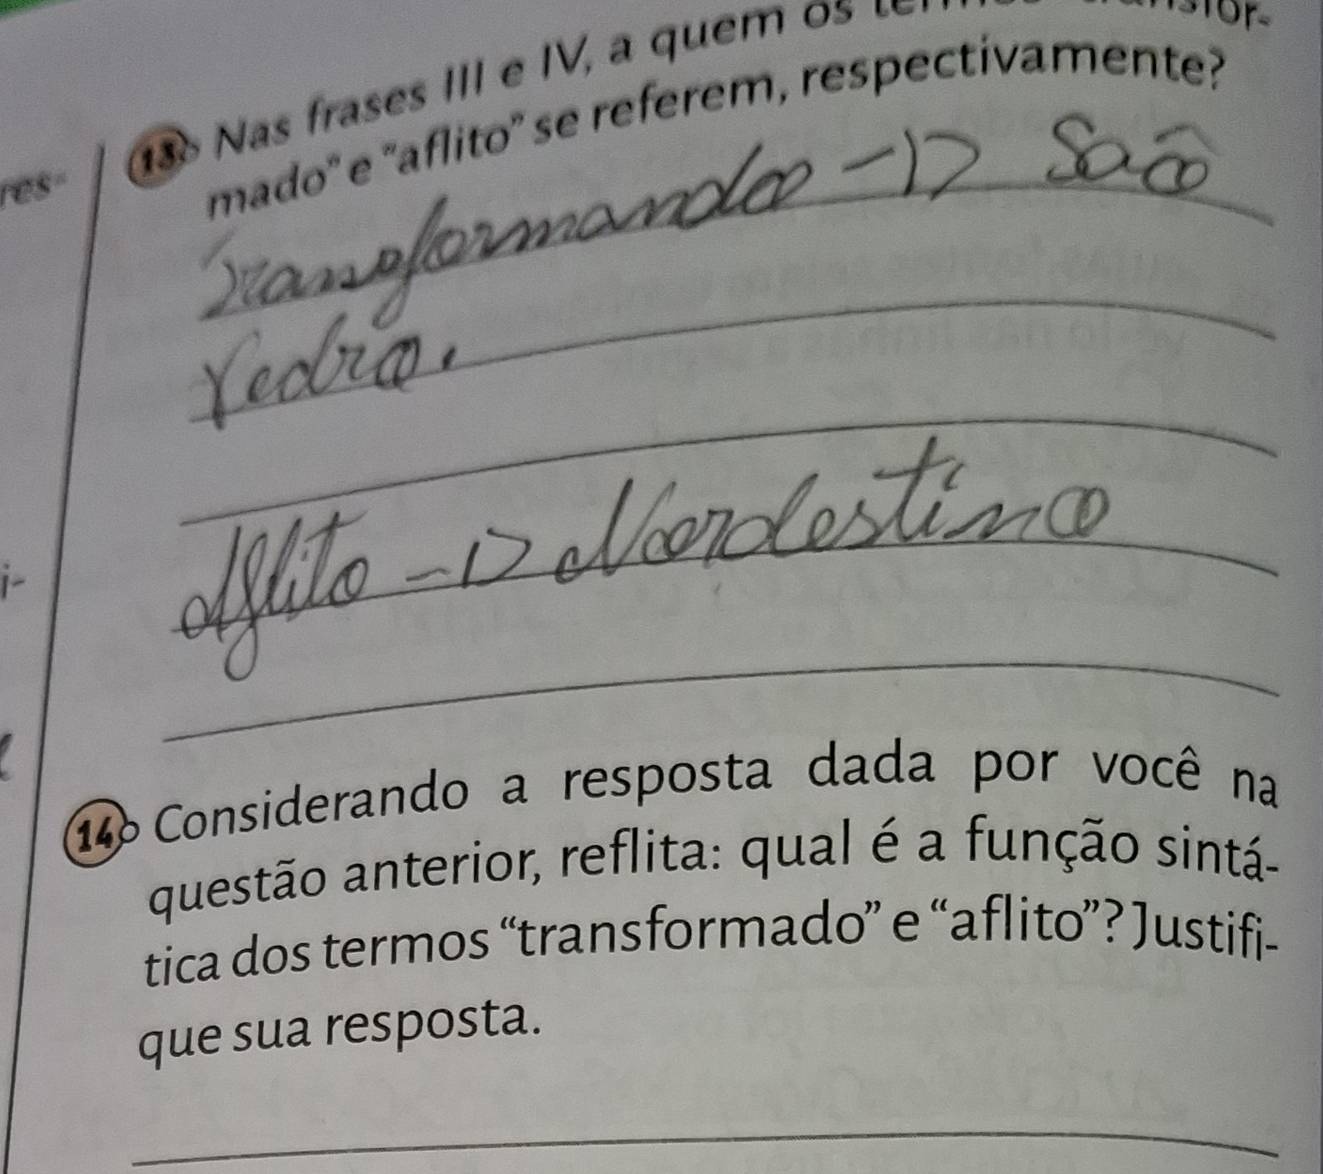 13 Nas frases III e IV, a quem os
mado" e "aflito" se referem, respectivamente?
res-
Transformando -> São
Pedro.
Aflito -> Nordestino
i-
14 Considerando a resposta dada por você na
questão anterior, reflita: qual é a função sintá-
tica dos termos “transformado” e “aflito”? Justifi-
que sua resposta.